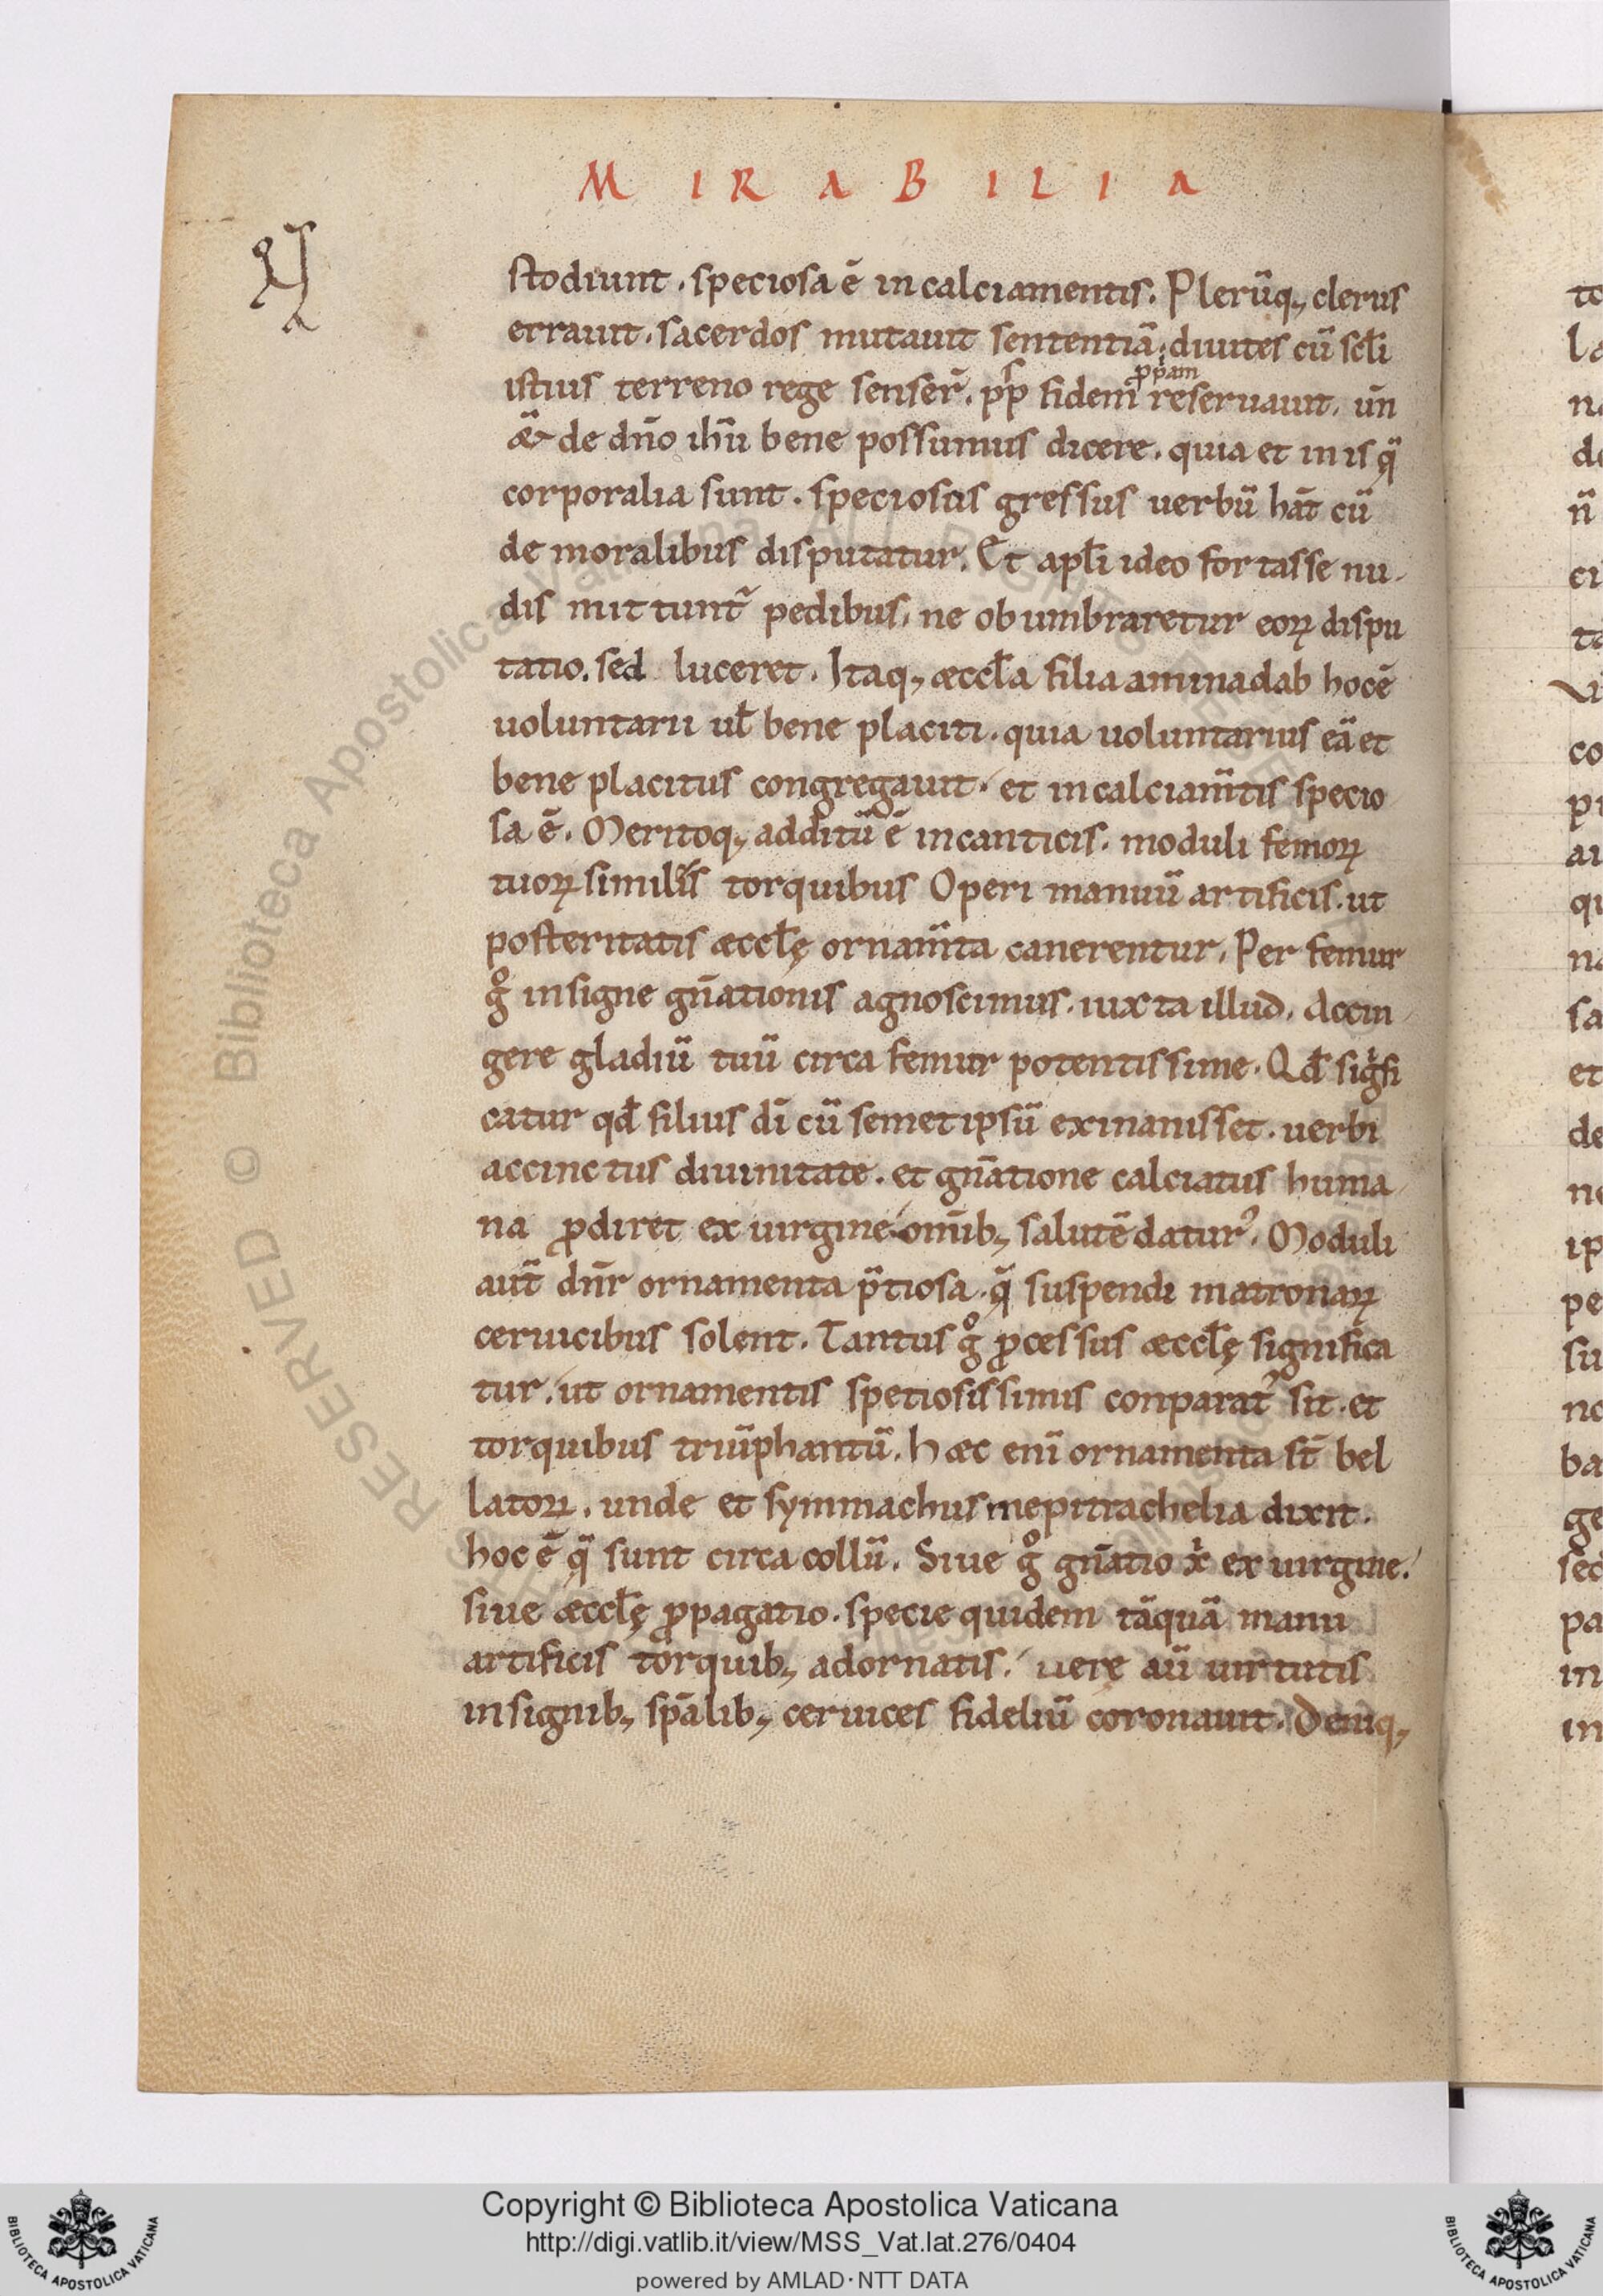 M I R A B I L I A
stodiunt. speciosa ē in calciamentis. Plerūq; clerus
errauit. sacerdos mutauit sententiā. diuites cū sc̄li
istius terreno rege senser̄. pp̄s fidem reseruauit. un̄
ꝓpam
ǣ de dn̄o ihū bene possumus dicere. quia et in is q̄
corporalia sunt. speciosus gressus uerbū hāt cū
de moralibus disputatur. Et apl̄i ideo fortasse nu-
dis mittunt᷑ pedibus. ne obumbraretur eoꝝ dispu
tatio. sed luceret. Itaq; æccl̄a filia aminadab hoc ē
uoluntarii ul̄ bene placiti. quia uoluntarius eā et
bene placitus congregauit. et in calciam̄tis specio
sa ē. Meritoq; additū ē in canticis. moduli femoꝝ
tuoꝝ similis torquibus Operi manuū artificis. ut
posteritatis æccl̄ę ornam̄ta canerentur. Per femur
gͦ insigne gn̄ationis agnoscimus. iuxta illud. Accin
gere gladiū tuū circa femur potentissime. Qd̄ sigͥfi
catur qd̄ filius dī cū semet ipsū exinanisset. uerbi
accinctus diuinitate. et gn̄atione calciatus huma
na ꝓdiret ex uirgine om̄ib; salutē datur᷒. Moduli
aut̄ dn̄r ornamenta p̄tiosa. q̄ suspendi matronaꝝ
ceruicibus solent. Tantus gͦ ꝓcessus æccl̄ę significa
tur. ut ornamentis spetiosissimis conparat᷒ sit. et
torquibus triūphantū. hæc enī ornamenta st̄ bel
latoꝝ. unde et symmachus mepitrachelia dixit.
hoc ē q̄ sunt circa collū. Siue gͦ gn̄atio xͥ ex uirgine.
siue æccl̄ę ꝓpagatio. specie quidem tāquā manu
artificis torquib; adornatis. uere aū uirtutis
insignib; sp̄alib; ceruices fideliū coronauit. Deniq;
Copyright © Biblioteca Apostolica Vaticana
http://digi.vatlib.it/view/MSS_Vat.lat.276/0404
powered by AMLAD·NTT DATA